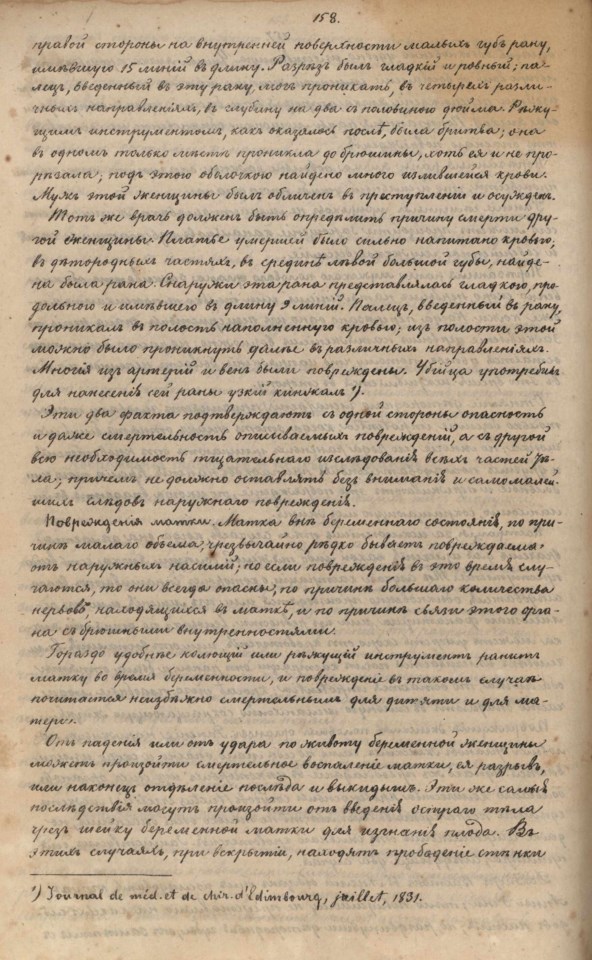 158.
правой стороны на внутренней поверхности малыхъ губъ рану,
имѣвшую 15 линій въ длину. Разрѣзъ былъ гладкій и ровный; па-
лецъ, введенный въ эту рану, могъ проникать, въ четырехъ разли-
чныхъ направленіяхъ, въ глубину на два съ половиною дюйма. Рѣжу-
щимъ инструментомъ, какъ оказалось послѣ, была бритва; она
въ одномъ только мѣстѣ проникла до брюшины, хоть ея и не про-
рѣзала; подъ этою оболочкою найдено много излившейся крови.
Мужъ этой женщины былъ обличенъ въ преступленіи и осужденъ.
Тотъ же врачъ долженъ быть опредѣлить причину смерти дру-
гой женщины. Платье умершей было сильно напитано кровью;
въ дѣтородныхъ частяхъ, въ срединѣ лѣвой большой губы, найде-
на была рана. Снаружи эта рана представлялась гладкою, про-
дольною и имѣвшею въ длину 9 линій. Палецъ, введенный въ рану,
проникалъ въ полость наполненную кровью; изъ полости этой
можно было проникнуть далѣе въ различныхъ направленіяхъ.
Многія изъ артерій и венъ были повреждены. Убійца употребилъ
для нанесенія сей раны узкій кинжалъ ¹).
Эти два факта подтверждаютъ съ одной стороны опасность
и даже смертельность описываемыхъ поврежденій, а съ другой
всю необходимость тщательнаго изслѣдованія всѣхъ частей тѣ-
ла; причемъ не должно оставлять безъ вниманія и самомалѣй-
шихъ слѣдовъ наружнаго поврежденія.
Поврежденія матки. Матка внѣ беременнаго состоянія, по при-
чинѣ малаго объема, чрезвычайно рѣдко бываетъ повреждаема
отъ наружныхъ насилій; но если поврежденія въ это время слу-
чаются, то они всегда опасны, по причинѣ большаго количества
нервовъ, находящихся въ маткѣ, и по причинѣ связи этого орга-
на съ брюшными внутренностями.
Гораздо удобнѣе колющій или рѣжущій инструментъ ранитъ
матку во время беременности, и поврежденіе въ такомъ случаѣ
почитается неизбѣжно смертельнымъ для дитяти и для ма-
тери.
Отъ паденія или отъ удара по животу беременной женщины
можетъ произойти смертельное воспаленіе матки, ея разрывъ,
или наконецъ отдѣленіе послѣда и выкидышъ. Эти же самыя
послѣдствія могутъ произойти отъ введенія остраго тѣла
чрезъ шейку беременной матки для изгнанія плода. Въ
этихъ случаяхъ, при вскрытіи, находятъ прободеніе стѣнки
¹) Journal de méd. et de chir. d'Edimbourg, juillet, 1831.